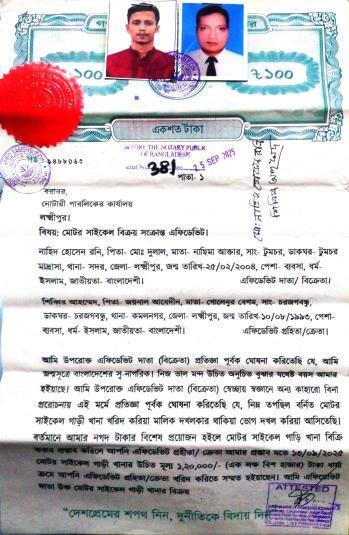 ১০০
১০০
একশত টাকা
BEFORE THE NOTARY PUBLIC
OF BANGLADESH
341
25 SEP 2025
পাতা- ১
বরাবর,
নোটারী পাবলিকের কার্যালয়
লক্ষ্মীপুর।
বিষয়: মোটর সাইকেল বিক্রয় সংক্রান্ত এফিডেভিট।
নাহিদ হোসেন রনি, পিতা- মোঃ দুলাল, মাতা- নাছিমা আক্তার, সাং- টুমচর, ডাকঘর- টুমচর
মাদ্রাসা, থানা- সদর, জেলা- লক্ষ্মীপুর, জন্ম তারিখ-২৫/০২/২০০৪, পেশা- ব্যবসা, ধর্ম-
ইসলাম, জাতীয়তা- বাংলাদেশী। এফিডেভিট দাতা/ বিক্রেতা।
শিব্বির আহম্মেদ, পিতা- জয়নাল আবেদীন, মাতা- গোলেনুর বেগম, সাং- চরজগবন্ধু,
ডাকঘর- চরজগবন্ধু, থানা- কমলনগর, জেলা- লক্ষ্মীপুর, জন্ম তারিখ-১০/০৮/১৯৯৩, পেশা-
ব্যবসা, ধর্ম- ইসলাম, জাতীয়তা- বাংলাদেশী। এফিডেভিট গ্রহিতা/ক্রেতা।
আমি উপরোক্ত এফিডেভিট দাতা (বিক্রেতা) প্রতিজ্ঞা পূর্বক ঘোষনা করিতেছি যে, আমি
জন্মসূত্রে বাংলাদেশের সু-নাগরিক। নিজ ভাল মন্দ উচিত অনুচিত বুঝার যথেষ্ট বয়স আমার
হইয়াছে। আমি উপরোক্ত এফিডেভিট দাতা (বিক্রেতা) স্বেচ্ছায় স্বজ্ঞানে অন্য কাহারো বিনা
প্ররোচনায় এই মর্মে প্রতিজ্ঞা পূর্বক ঘোষনা করিতেছি যে, নিম্ন তপছিল বর্নিত মোটর
সাইকেল গাড়ী খানা খরিদ করিয়া মালিক দখলকার থাকিয়া ভোগ দখল করিয়া আসিতেছি।
বর্তমানে আমার নগদ টাকার বিশেষ প্রয়োজন হইলে মোটর সাইকেল গাড়ি খানা বিক্রি
করার প্রস্তাব করিলে আপনি এফিডেভিট গ্রহিতা/ ক্রেতা আমার প্রস্তাব মতে ১৩/০৯/২০২৫
মোটর সাইকেল গাড়ী খানার উচিত মূল্য ১,২০,০০০/- (এক লক্ষ বিশ হাজার) টাকা ধার্য্য
আপনি এফিডেভিট গ্রহিতা/ক্রেতা খরিদ করিতে সম্মত হইয়াছেন। আমি এফিডেভিট
দাতা উক্ত মোটর সাইকেল গাড়ী খানার বিক্রয়
ATTESTED
"দেশপ্রেমের শপথ নিন, দুর্নীতিকে বিদায় দিন"